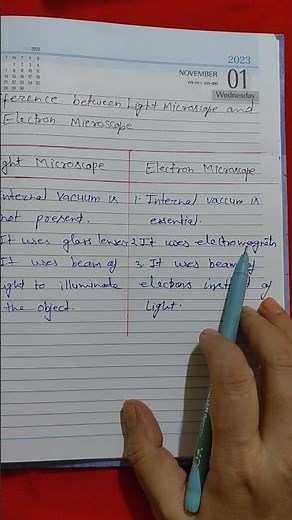 2023
NOVEMBER 01
Wednesday
ference between Light Microscope and
Electron Microscope
ght Microscope Electron Microscope
nternal vacuum is 1. Internal vaccum is
not present. essential.
It uses glass lenses 2. It uses electromagnets
It uses beam of 3. It uses beam of
ght to illuminate electrons instead of
the object. Light.